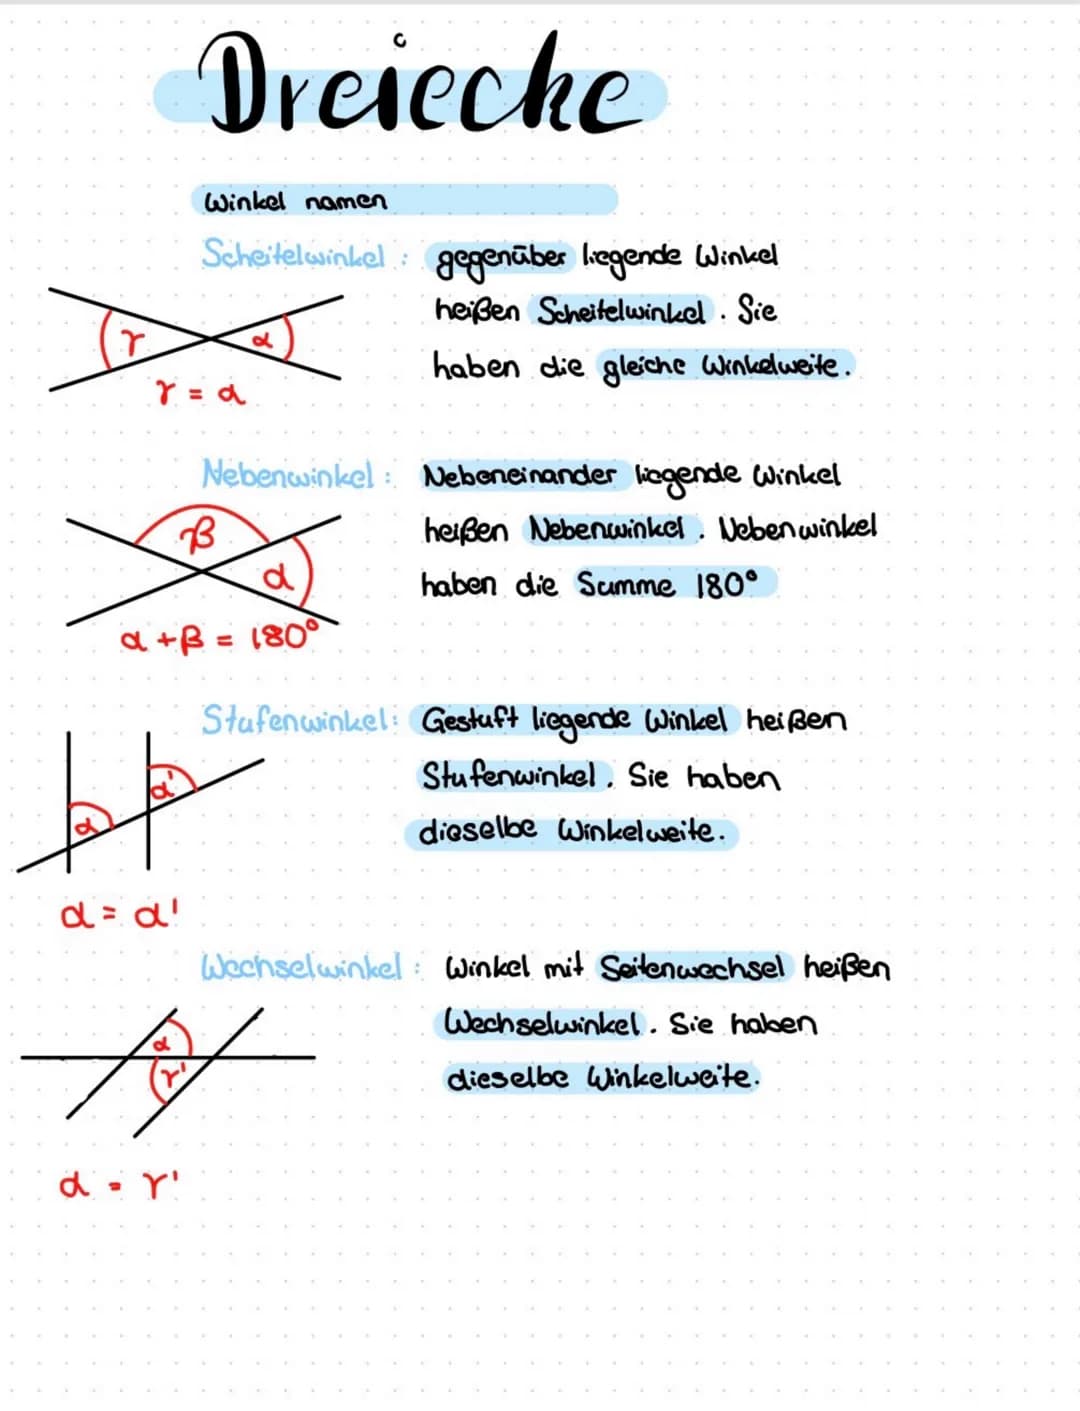 Dreiecke
Winkel namen
Scheitelwinkel : gegenüber liegende Winkel
heißen Scheitelwinkel. Sie
haben die gleiche Winkelweite.
γ
α
γ = α
Nebenwinkel : Nebeneinander liegende Winkel
heißen Nebenwinkel. Nebenwinkel
haben die Summe 180°
β
α
α + β = 180°
Stufenwinkel: Gestuft liegende Winkel heißen
Stufenwinkel. Sie haben
dieselbe Winkelweite.
α'
α
α = α'
Wechselwinkel : Winkel mit Seitenwechsel heißen
Wechselwinkel. Sie haben
dieselbe Winkelweite.
α
γ'
α = γ'